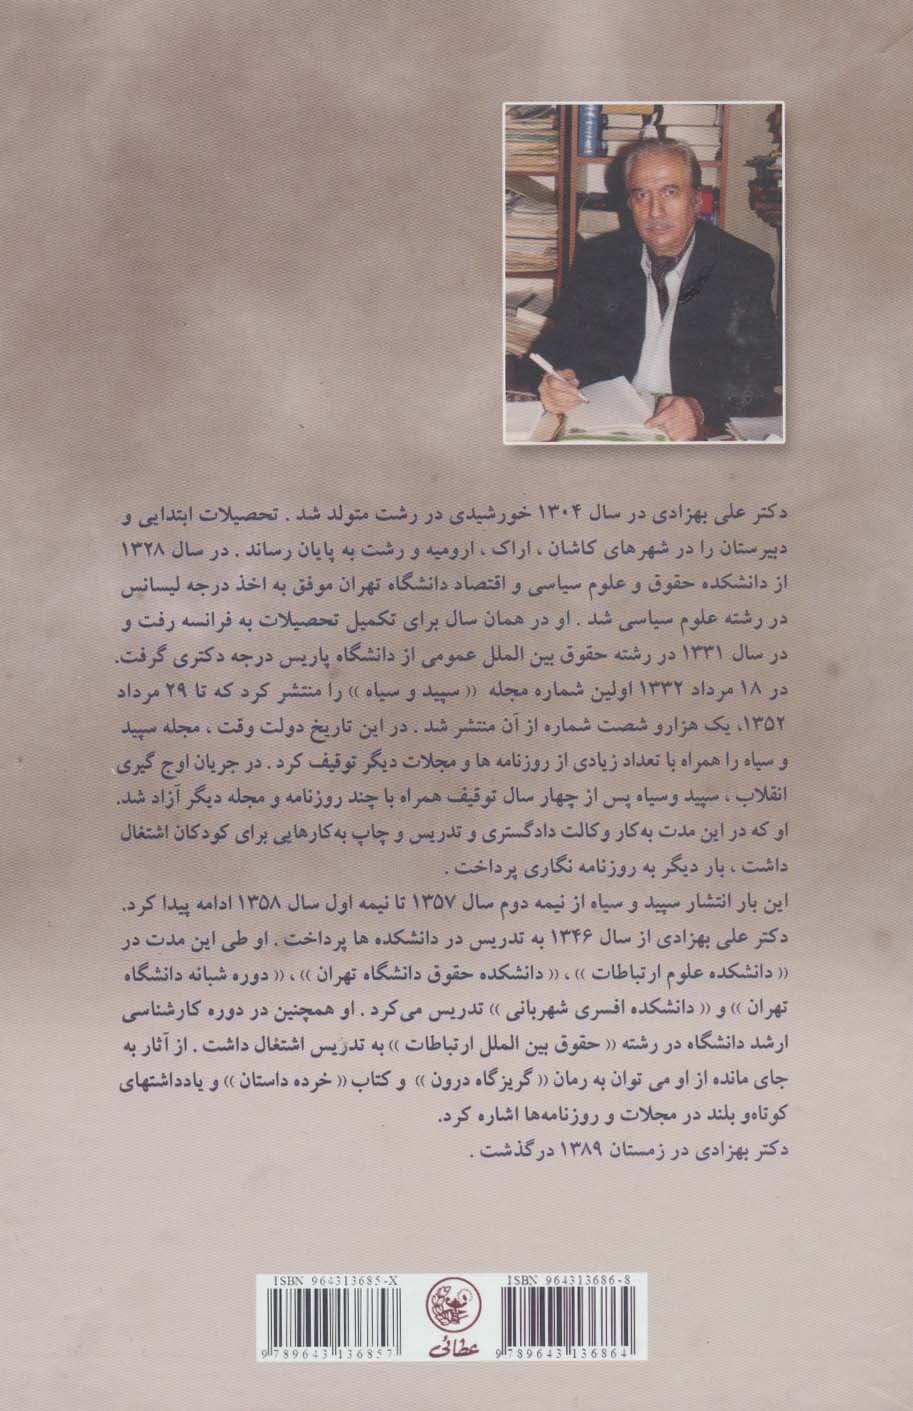 دکتر علی بهزادی در سال ۱۳۰۴ خورشیدی در رشت متولد شد . تحصیلات ابتدایی و
دبیرستان را در شهرهای کاشان ، اراک ، ارومیه و رشت به پایان رساند . در سال ۱۳۲۸
از دانشکده حقوق و علوم سیاسی و اقتصاد دانشگاه تهران موفق به اخذ درجه لیسانس
در رشته علوم سیاسی شد . او در همان سال برای تکمیل تحصیلات به فرانسه رفت و
در سال ۱۳۳۱ در رشته حقوق بین الملل عمومی از دانشگاه پاریس درجه دکتری گرفت.
در ۱۸ مرداد ۱۳۳۲ اولین شماره مجله (( سپید و سیاه )) را منتشر کرد که تا ۲۹ مرداد
۱۳۵۲، یک هزارو شصت شماره از آن منتشر شد . در این تاریخ دولت وقت ، مجله سپید
و سیاه را همراه با تعداد زیادی از روزنامه ها و مجلات دیگر توقیف کرد . در جریان اوج گیری
انقلاب ، سپید وسیاه پس از چهار سال توقیف همراه با چند روزنامه و مجله دیگر آزاد شد.
او که در این مدت به‌کار وکالت دادگستری و تدریس و چاپ به‌کارهایی برای کودکان اشتغال
داشت ، بار دیگر به روزنامه نگاری پرداخت .
این بار انتشار سپید و سیاه از نیمه دوم سال ۱۳۵۷ تا نیمه اول سال ۱۳۵۸ ادامه پیدا کرد.
دکتر علی بهزادی از سال ۱۳۴۶ به تدریس در دانشکده ها پرداخت . او طی این مدت در
(( دانشکده علوم ارتباطات ))، (( دانشکده حقوق دانشگاه تهران ))، (( دوره شبانه دانشگاه
تهران )) و (( دانشکده افسری شهربانی )) تدریس می‌کرد . او همچنین در دوره کارشناسی
ارشد دانشگاه در رشته (( حقوق بین الملل ارتباطات )) به تدریس اشتغال داشت . از آثار به
جای مانده از او می توان به رمان (( گریزگاه درون )) و کتاب (( خرده داستان )) و یادداشتهای
کوتاه‌و بلند در مجلات و روزنامه‌ها اشاره کرد.
دکتر بهزادی در زمستان ۱۳۸۹ درگذشت .
ISBN 964313685-X
9 789643 136857
عطائی
ISBN 964313686-8
9 789643 136864